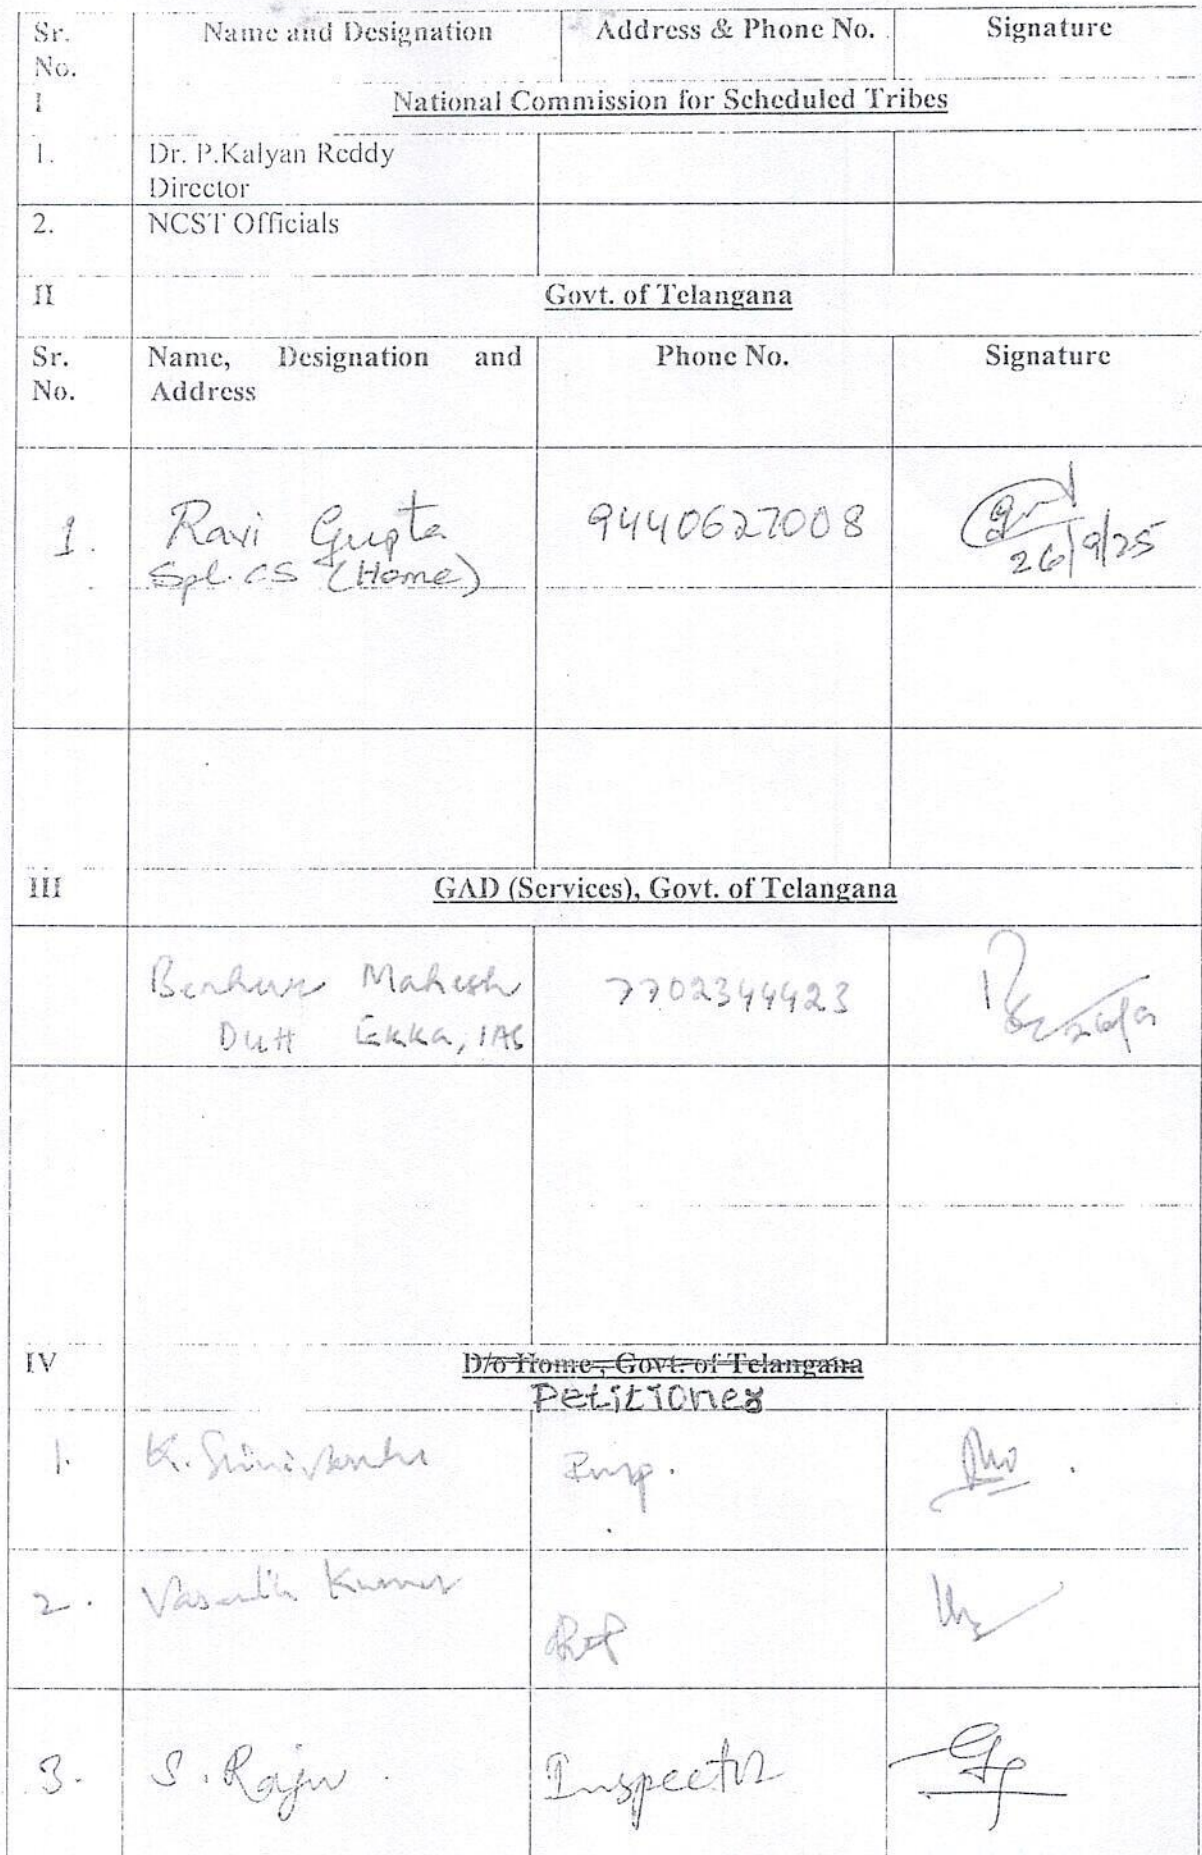 Sr. No. Name and Designation Address & Phone No. Signature
I National Commission for Scheduled Tribes
1. Dr. P.Kalyan Reddy
Director
2. NCST Officials
II Govt. of Telangana
Sr. No. Name, Designation and Address Phone No. Signature
1. Ravi Gupta 9440627008
Spl. CS (Home) 26/9/25
III GAD (Services), Govt. of Telangana
Benhur Mahesh 7702344423
Dutt Ekka, IAS
IV D/o Home, Govt. of Telangana
Petitioner
1. K. Insp.
2. Vasanth Kumar
3. S. Raju Inspector